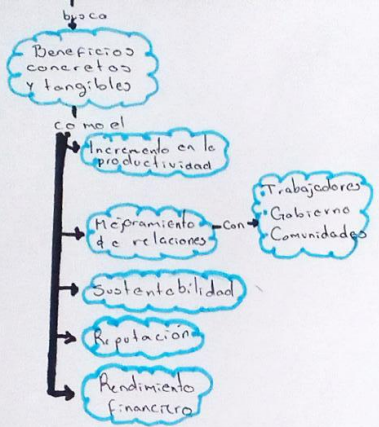 busca
Beneficios
concretos
y tangibles
como el
Incremento en la
productividad
Mejoramiento
de relaciones
con
Trabajadores
Gobierno
Comunidades
Sustentabilidad
Reputación
Rendimiento
financiero